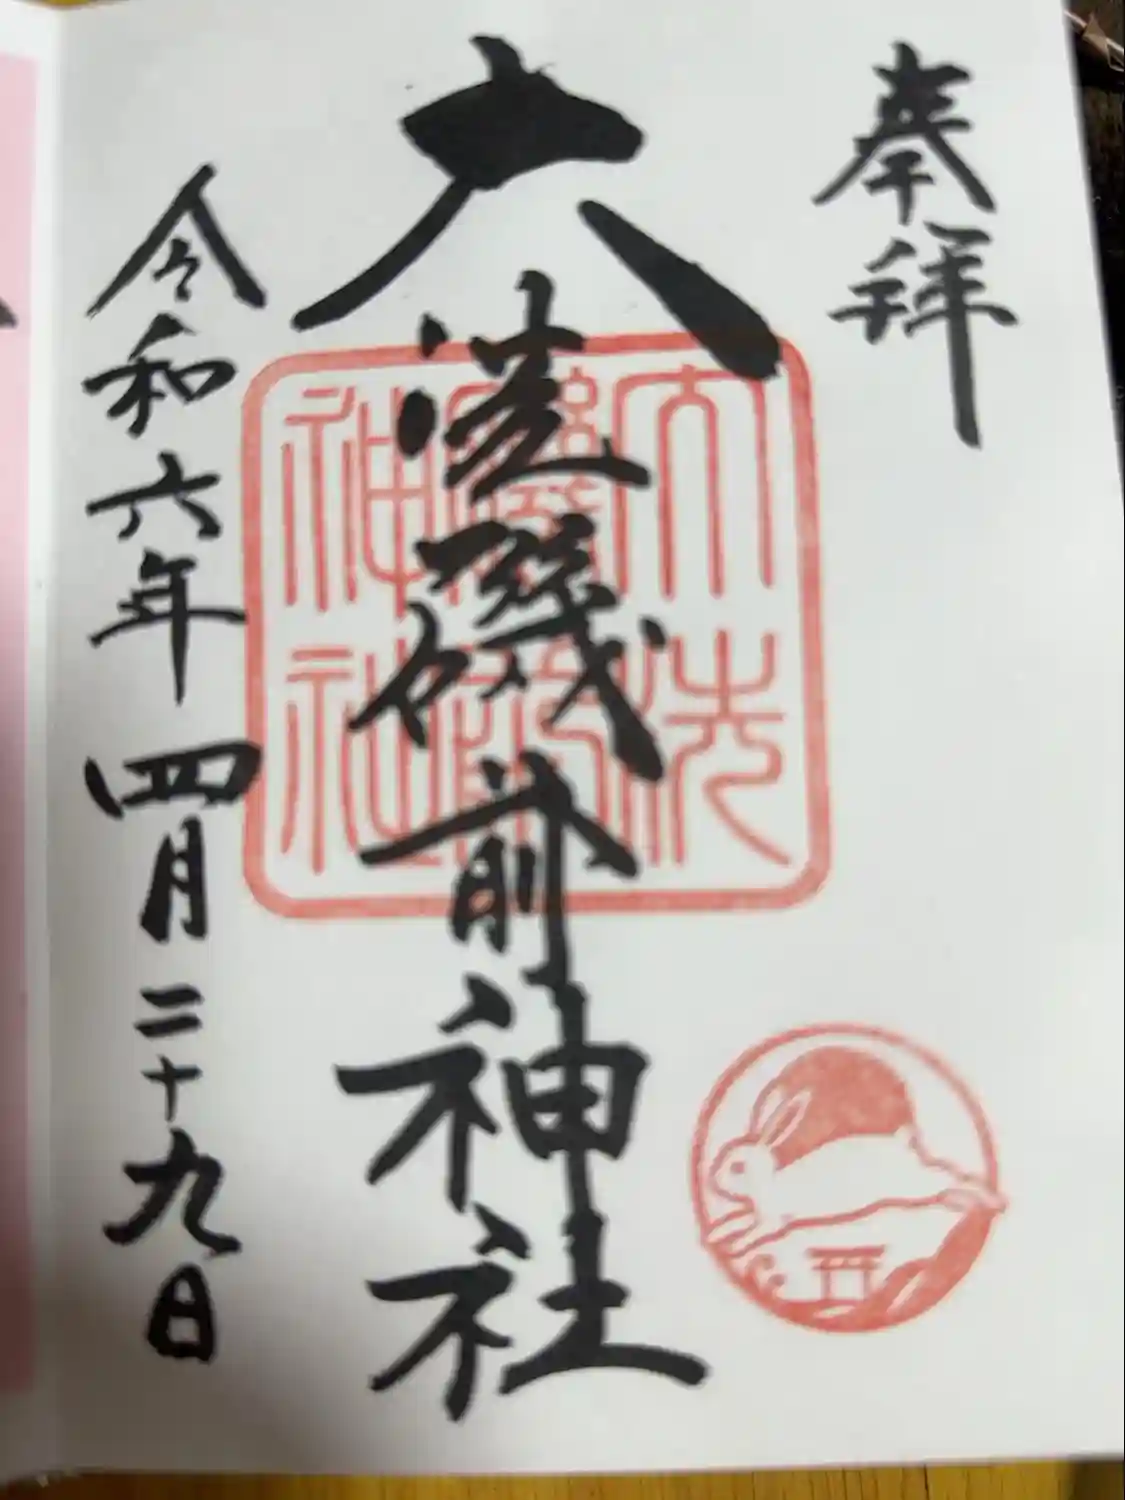 奉拝
大洗磯前神社
大洗磯前神社
令和六年四月二十九日